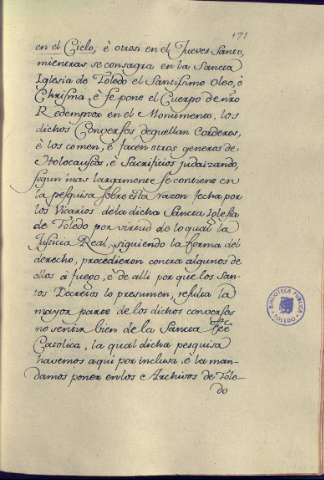 171
en el Cielo, è otrosi en el Jueves Santo,
mientras se consagra en la Sancta
Iglesia de Toledo el Santissimo Oleo, è
Chrisma, è se pone el Cuerpo de nro
Redemptor en el Monumento, los
dichos Conversos deguellan Corderos,
è los comen, è facen otros generos de
Holocaustos, è Sacrificios judaizando,
segun mas largamente se contiene en
la pesquisa sobre esta razon fecha por
los Vicarios de la dicha Sancta Iglesia
de Toledo por virtud de lo qual la
Justicia Real, siguiendo la forma del
derecho, procedieron contra algunos de
ellos à fuego, è de alli por que los San-
tos Decretos lo presumen, resulta la
mayor parte de los dichos conversos
no sentir bien de la Sancta Fee
Catolica, la qual dicha pesquisa
havemos aqui por inclusa, è la man-
damos poner en los Archivos de Tole-
do
BIBLIOTECA PUBLICA
TOLEDO